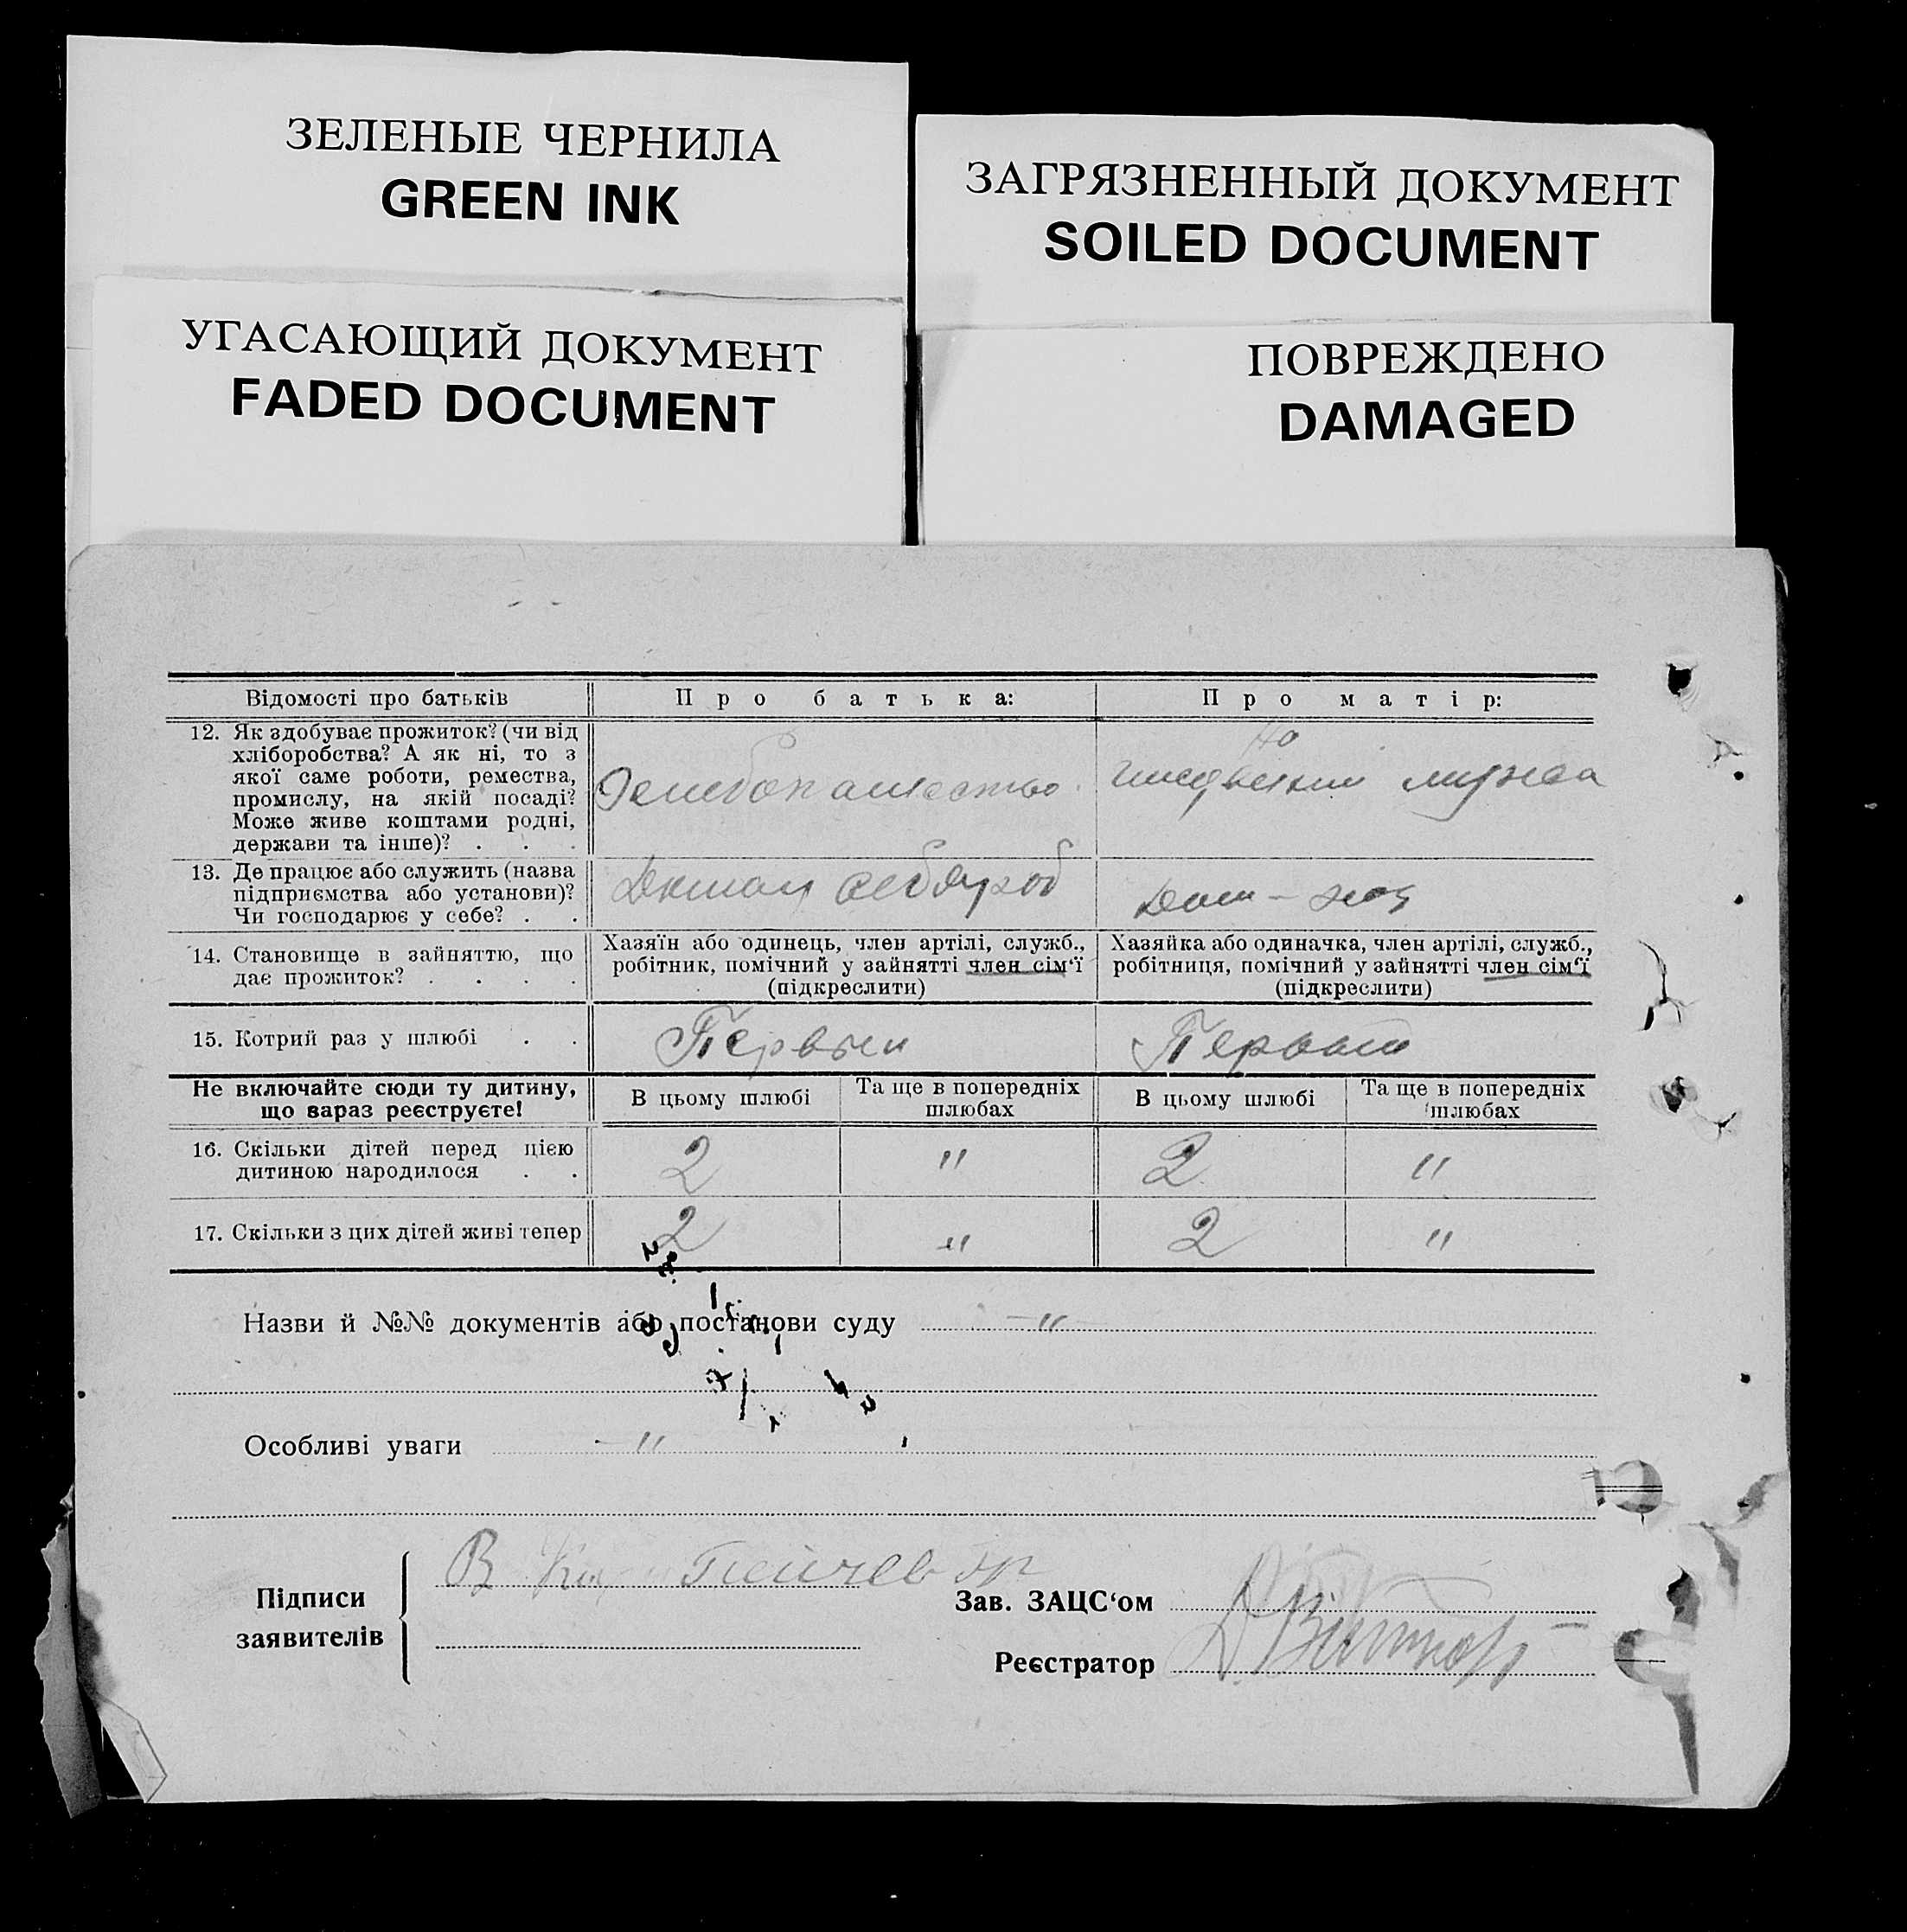 ЗЕЛЕНЫЕ ЧЕРНИЛА
GREEN INK
ЗАГРЯЗНЕННЫЙ ДОКУМЕНТ
SOILED DOCUMENT
УГАСАЮЩИЙ ДОКУМЕНТ
FADED DOCUMENT
ПОВРЕЖДЕНО
DAMAGED
Відомості про батьків
Про батька:
Про матір:
12. Як здобуває прожиток? (чи від
хліборобства? А як ні, то з
якої саме роботи, ремества,
промислу, на якій посаді?
Може живе коштами родні,
держави та інше)? . . .
мужа
13. Де працює або служить (назва
підприємства або установи)?
Чи господарює у себе? . .
Дом-хоз
14. Становище в зайняттю, що
дає прожиток? . . . .
Хазяїн або одинець, член артілі, служб.,
робітник, помічний у зайнятті член сім‘ї
(підкреслити)
Хазяйка або одиначка, член артілі, служб.,
робітниця, помічний у зайнятті член сім‘ї
(підкреслити)
15. Котрий раз у шлюбі . .
Первый
Первый
Не включайте сюди ту дитину,
що вараз реєструєте!
В цьому шлюбі
Та ще в попередніх
шлюбах
В цьому шлюбі
Та ще в попередніх
шлюбах
16. Скільки дітей перед цією
дитиною народилося . .
2
"
2
"
17. Скільки з цих дітей живі тепер
2
"
2
"
Назви й №№ документів або постанови суду —"—
Особливі уваги —"
Підписи
заявителів
В
Зав. ЗАЦС‘ом
Реєстратор